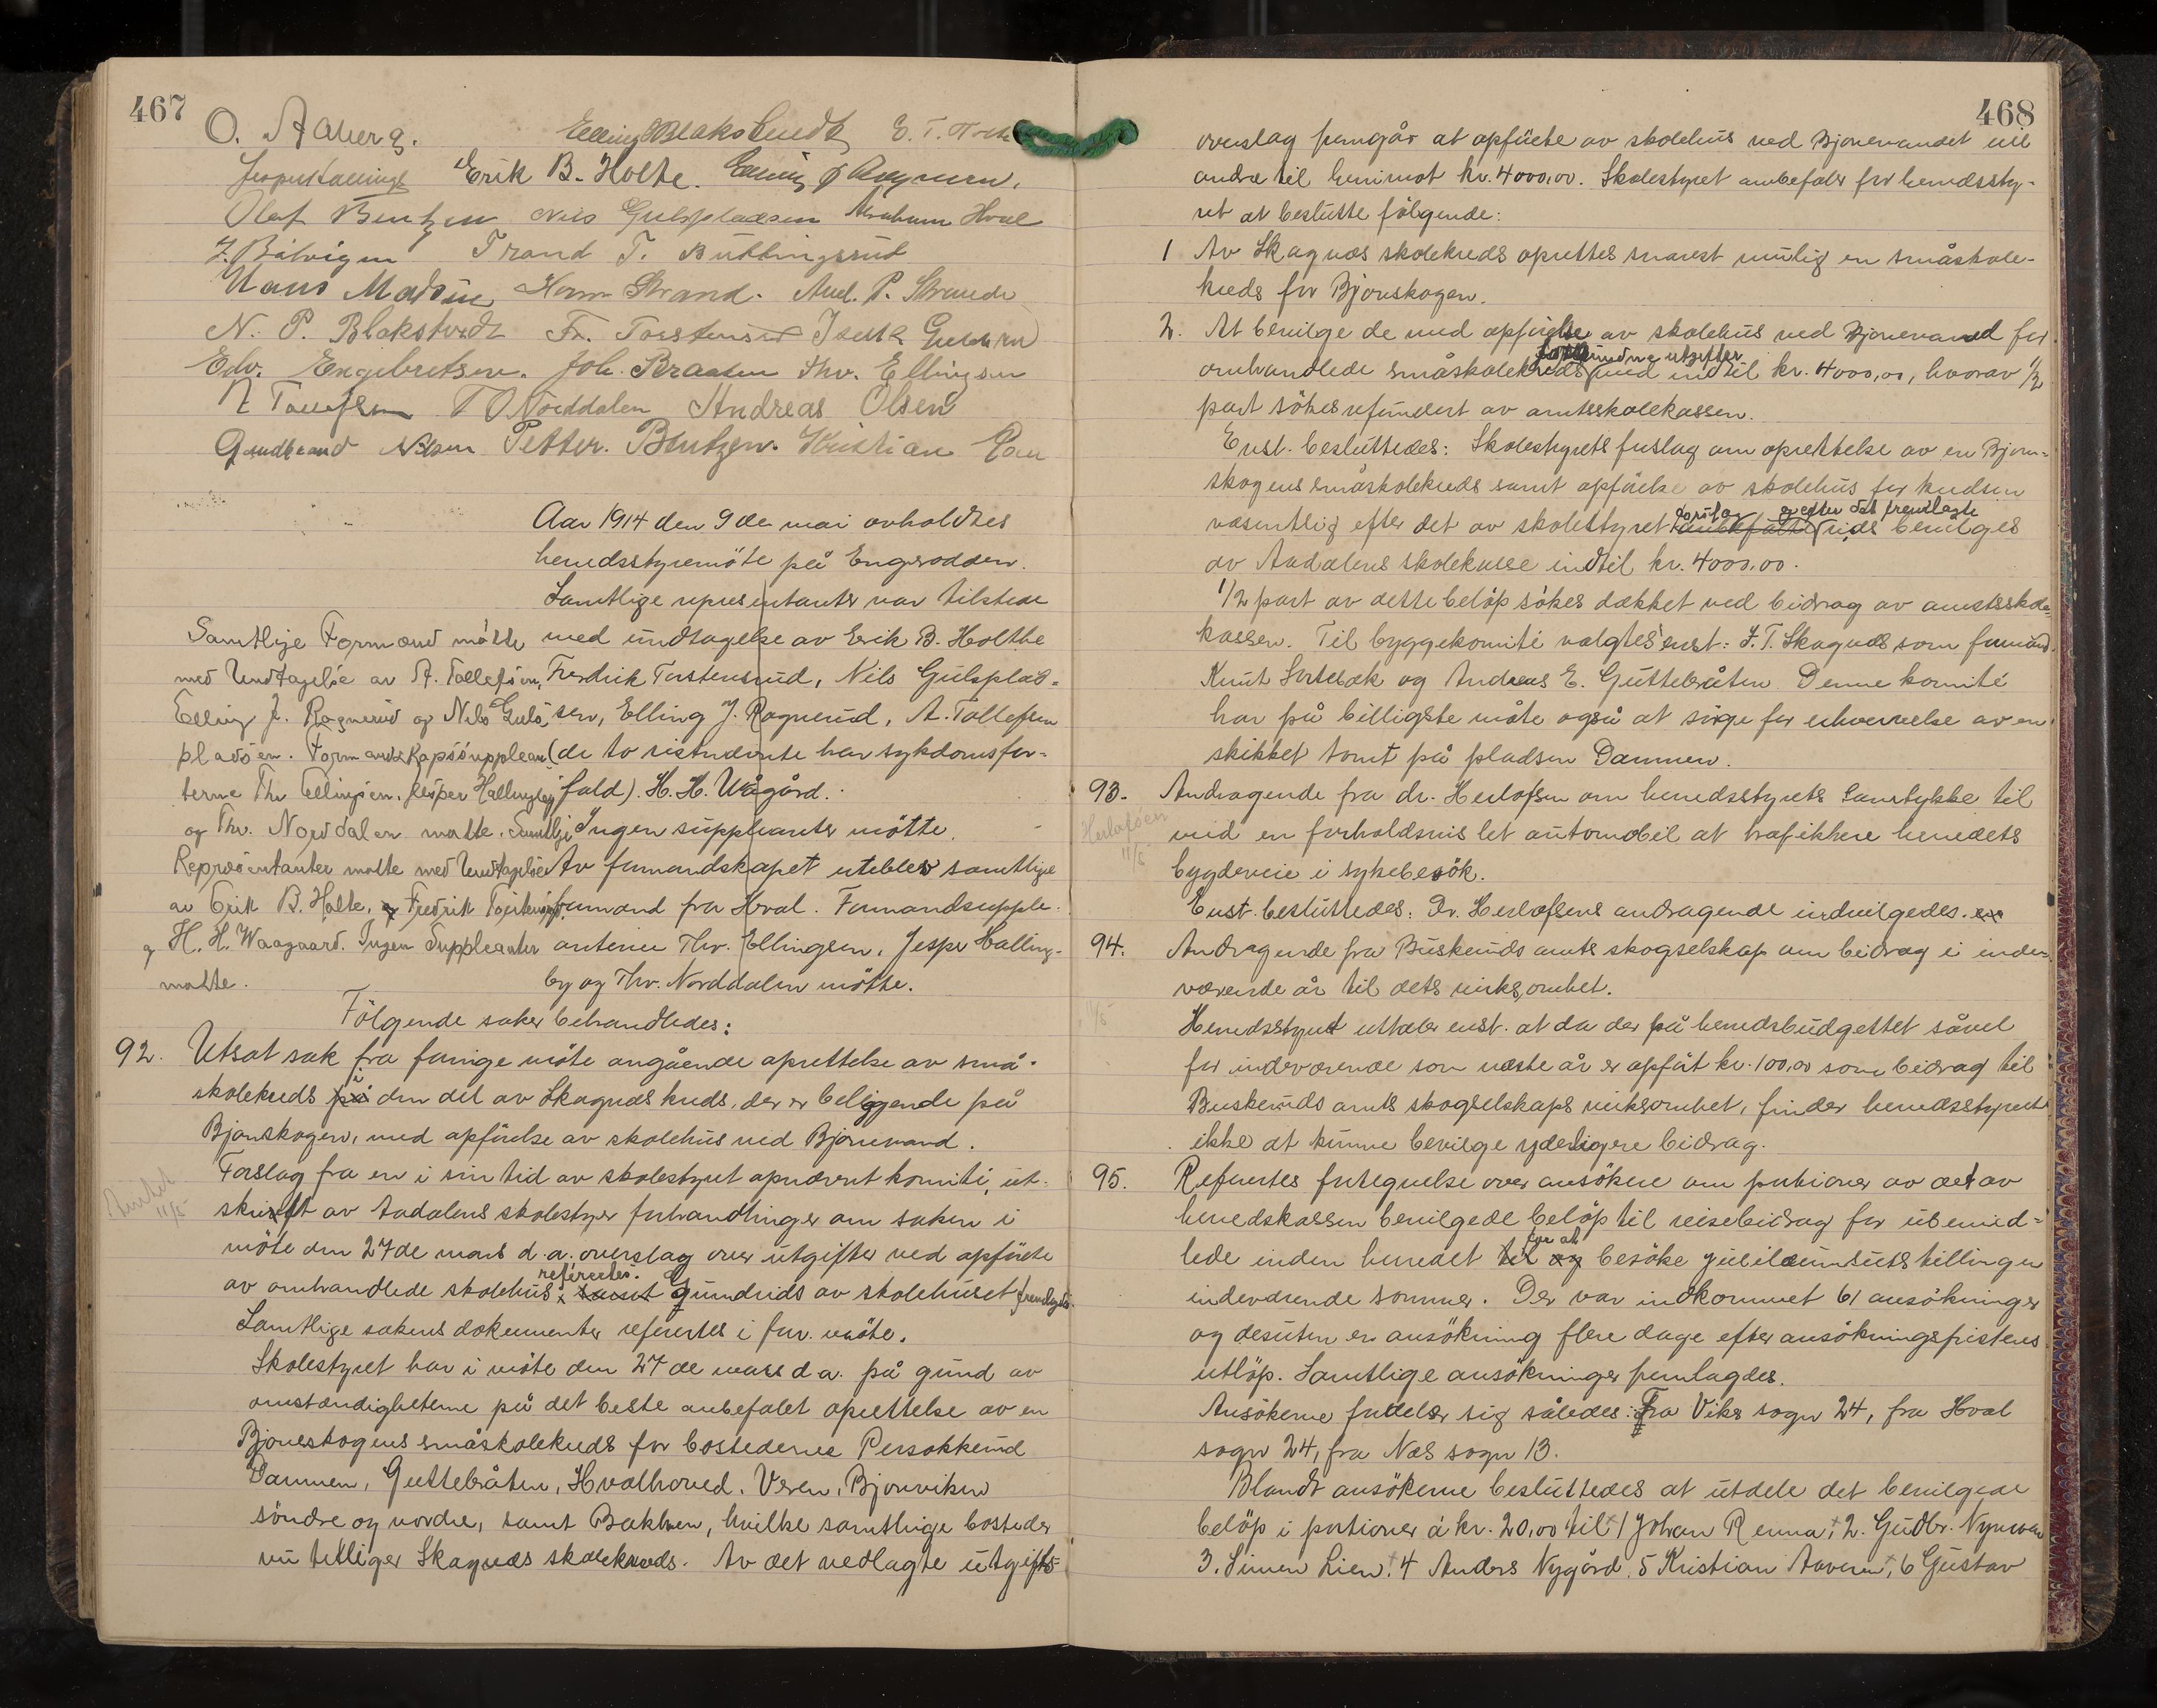 467
O. Aaberg. Elling Blakstvedt E. T.
Jesper Hallingby Erik B. Holte. Elling J Ragnerud.
Olaf Bentzen Nils Gulspladsen Abraham Hval
Trand T. Buttingsrud
Hans Madsen Strand. Aud. P. Strande
N. P. Blakstvedt Fr. Torstensrud
Edv. Engebretsen. Joh. Braaten Thv. Ellingsen
A Tollefsen T O Norddalen Andreas Olsen
Gudbrand Nilsen Petter. Bentzen. Kristian
Aar 1914 den 9de mai avholdtes
herredsstyremöte på Engerodden.
Samtlige repræsentanter var tilstede
med undtagelse av Erik B. Holthe
Fredrik Torstensrud, Nils Gulsplad-
sen, Elling J. Ragnerud, A. Tollefsen
(de to sistnevnte har sykdomsfor-
fald). H. H. Wågård.
Ingen suppleanter mötte.
Av formandskapet uteblev samtlige
formænd fra Hval. Formandsupple-
anterne Thv. Ellingsen, Jesper Halling-
by og Thv. Norddalen mötte.
Samtlige Formænd mötte
med Undtagelse av A. Tollefsen,
Elling J. Ragnerud og Nils Guls
pladsen. Formandskapssupplean
terne Thv Ellingsen, Jesper Hallingby
og Thv. Norddalen mötte. Samtlige
Repræsentanter motte med Undtagelse
av Erik B. Holte, og Fredrik Torstensrud
og H. H. Waagaard. Ingen Suppleanter
motte.
Fölgende saker behandledes:
92. Utsat sak fra forrige möte angående oprettelse av små-
skolekreds på i den del av Skagnæs kreds, der er beliggende på
Bjoneskogen, med opförelse av skolehus ved Bjonevand.
Forslag fra en i sin tid av skolestyret opnævnt komité, ut-
skrift av Aadalens skolestyres forhandlinger om saken i
möte den 27de mars d.a. overslag over utgifter ved opförelse
av omhandlede skolehus referertes. samt Grundrids av skolehuset fremlagdes.
Samtlige sakens dokumenter refereres i for. möte.
Skolestyret har i möte den 27de mars d a. på grund av
omstændigheterne på det beste anbefalet oprettelse av en
Bjoneskogens småskolekreds for bostederne Persokkerud
Dammen, Guttebråten, Hvalhoved, Veren, Bjonviken
söndre og nordre, samt Bakken, hvilke samtlige bosteder
nu tilligger Skagnæs skolekreds. Av det vedlagte utgifts-
Amtet
11/5
468
overslag fremgår at opförelse av skolehus ved Bjonevandet vil
andra til henimot kr. 4000,00. Skolestyret anbefaler for herredssty-
ret at beslutte fölgende:
1 Av Skagnæs skolekreds oprettes snarest mulig en småskole-
kreds for Bjoneskogen.
2. At bevilge de med opförelse av skolehus ved Bjonevand for
omhandlede småskolekreds forbundne utgifter med indtil kr. 4000,00, hvorav 1/2
part sökes refundert av amtsskolekassen.
Enst. besluttedes: Skolestyrets forslag om oprettelse av en Bjone-
skogens småskolekreds samt opförelse av skolehus for kredsen
væsentlig efter det av skolestyret anbefalte forslag og efter det fremlagte rids bevilges
av Aadalens skolekasse indtil kr. 4000.00.
1/2 part av dette belöp sökes dækket ved bidrag av amtsskole-
kassen. Til byggekomité valgtes enst: J. T. Skagnæs som formand.
Knut Sortebæk og Andreas E. Guttebråten. Denne komité
har på billigste måte også at sörge for erhvervelse av en
skikket tomt på pladsen Dammen.
93. Andragende fra dr. Herlofsen om herredsstyrets samtykke til
med en forholdsvis let automobil at trafikkere herredets
bygdeveie i sykebesök.
Enst. besluttedes: Dr. Herlofsens andragende indvilgedes.
Herlofsen
11/5
94. Andragende fra Buskeruds amts skogselskap om bidrag i inde-
værende år til dets virksomhet.
Herredsstyret uttaler enst. at da der på herredsbudgettet såvel
for indeværende som næste år er opfört kr. 100,00 som bidrag til
Buskeruds amts skogselskaps virksomhet, finder herredsstyret
ikke at kunne bevilge yderligere bidrag.
11/5
95. Refereres fortegnelse over ansökere om portioner av det av
herredskassen bevilgede belöp til reisebidrag for ubemid-
lede inden herredet til og for at besöke jubilæumsutstillingen
indeværende sommer. Der var indkommet 61 ansökninger
og desuten en ansökning flere dage efter ansökningsfristens
utlöp. Samtlige ansökninger fremlagdes.
Ansökerne fordeler sig således: Fra Viker sogn 24, fra Hval
sogn 24, fra Næs sogn 13.
Blandt ansökerne besluttedes at utdele det bevilgede
belöp i portioner à kr. 20,00 til 1 Johan Renna, 2. Gudbr. Nymoen
3. Simen Lien, 4 Anders Nygård, 5 Kristian Aaveren, 6 Gustav